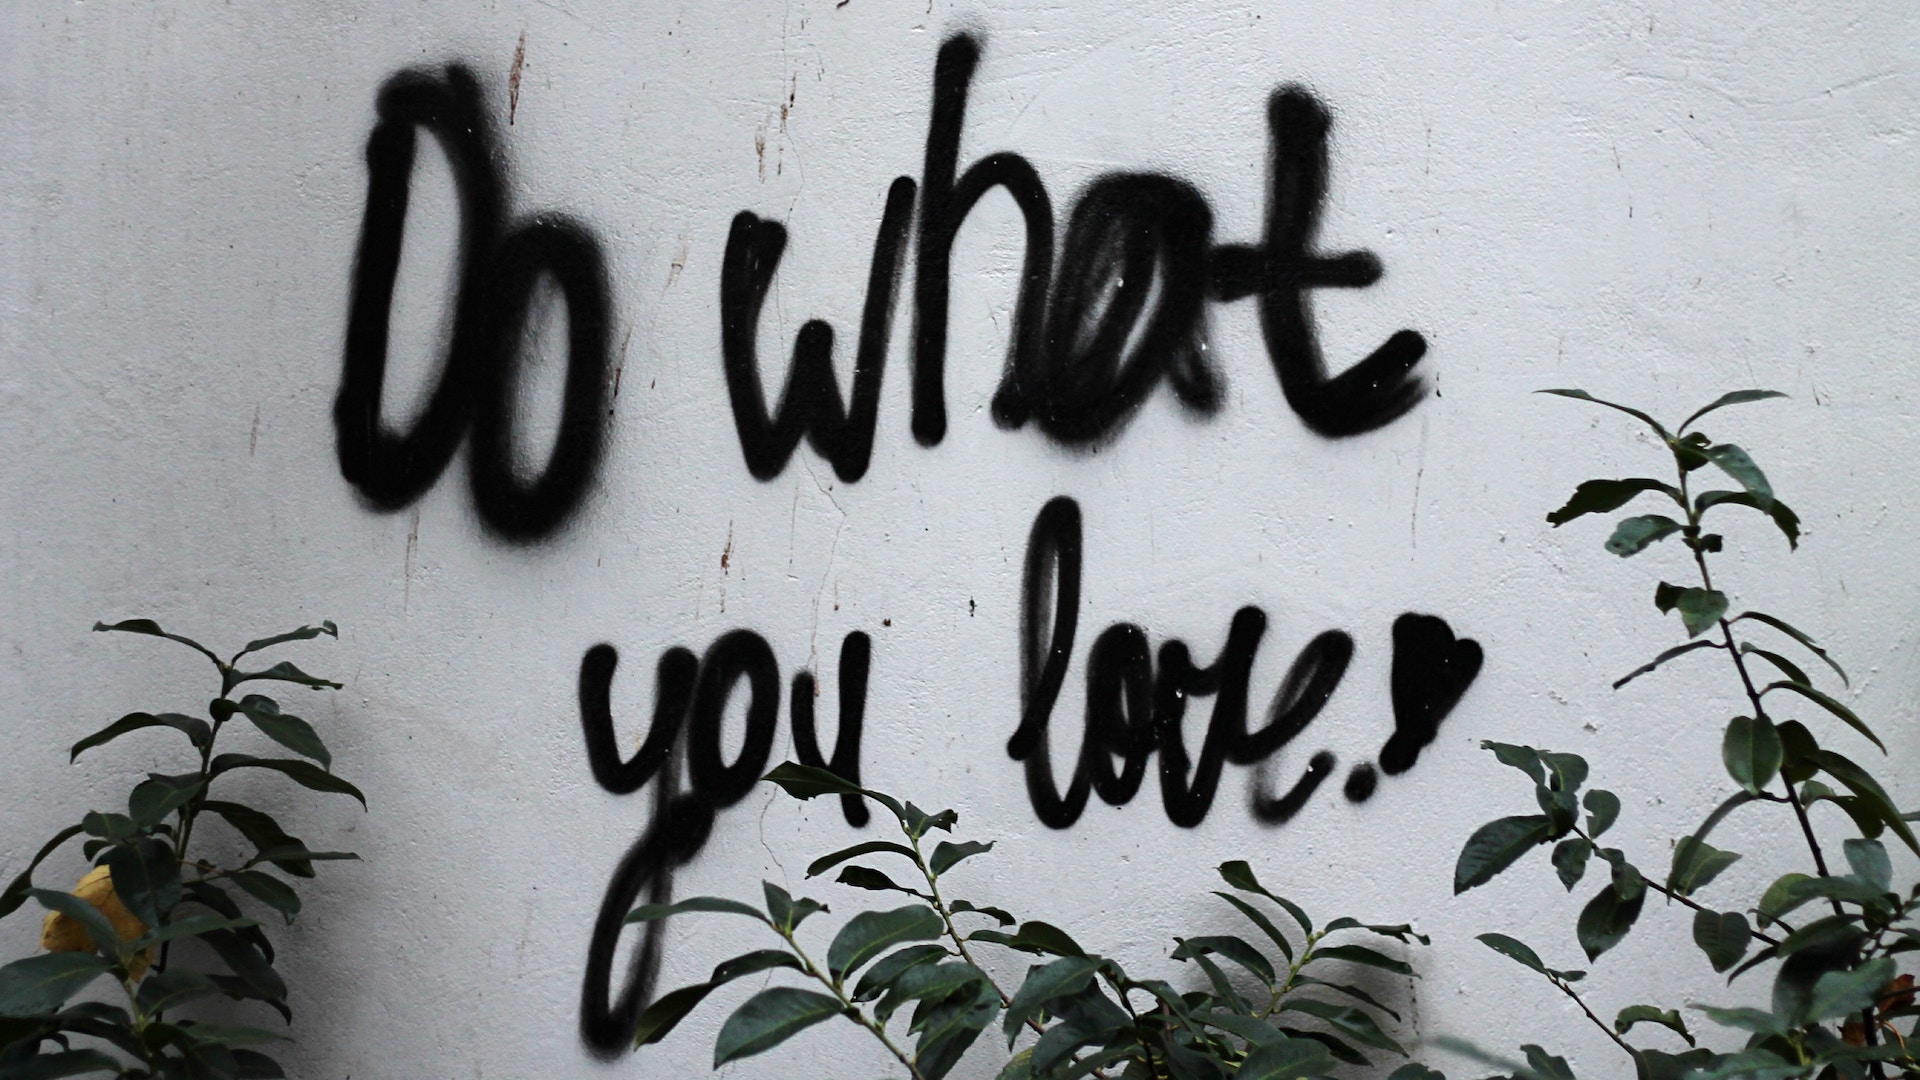 Do what
you love.♥